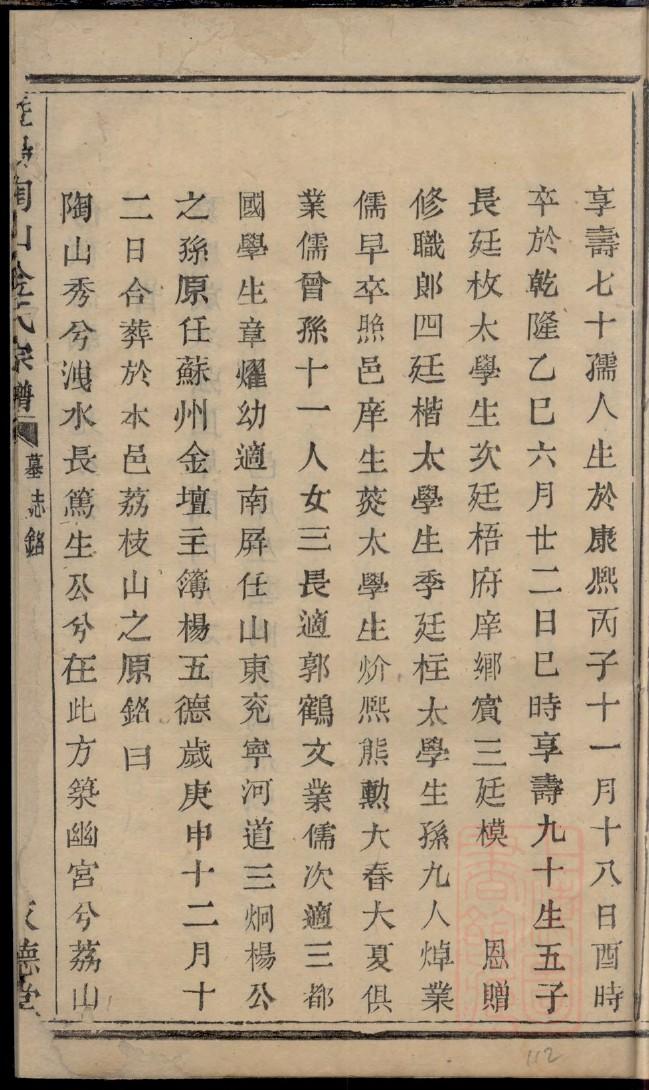 享壽七十孺人生於康熙丙子十一月十八日酉時
卒於乾隆乙巳六月廿二日巳時享壽九十生五子
長廷枚太學生次廷梧府庠鄉賓三廷模　恩贈
修職郎四廷楷太學生季廷柱太學生孫九人焯業
儒早卒照邑庠生荧太學生炌熙熊勲大春大夏俱
業儒曾孫十一人女三長適郭鶴文業儒次適三都
國學生章燿幼適南屏任山東兖寧河道三炯楊公
之孫原任蘇州金壇主簿楊五德歲庚申十二月十
二日合葬於本邑荔枝山之原銘曰
陶山秀兮洩水長篤生公兮在此方築幽宮兮荔山
陶山 氏宗譜
墓志銘
德堂
112